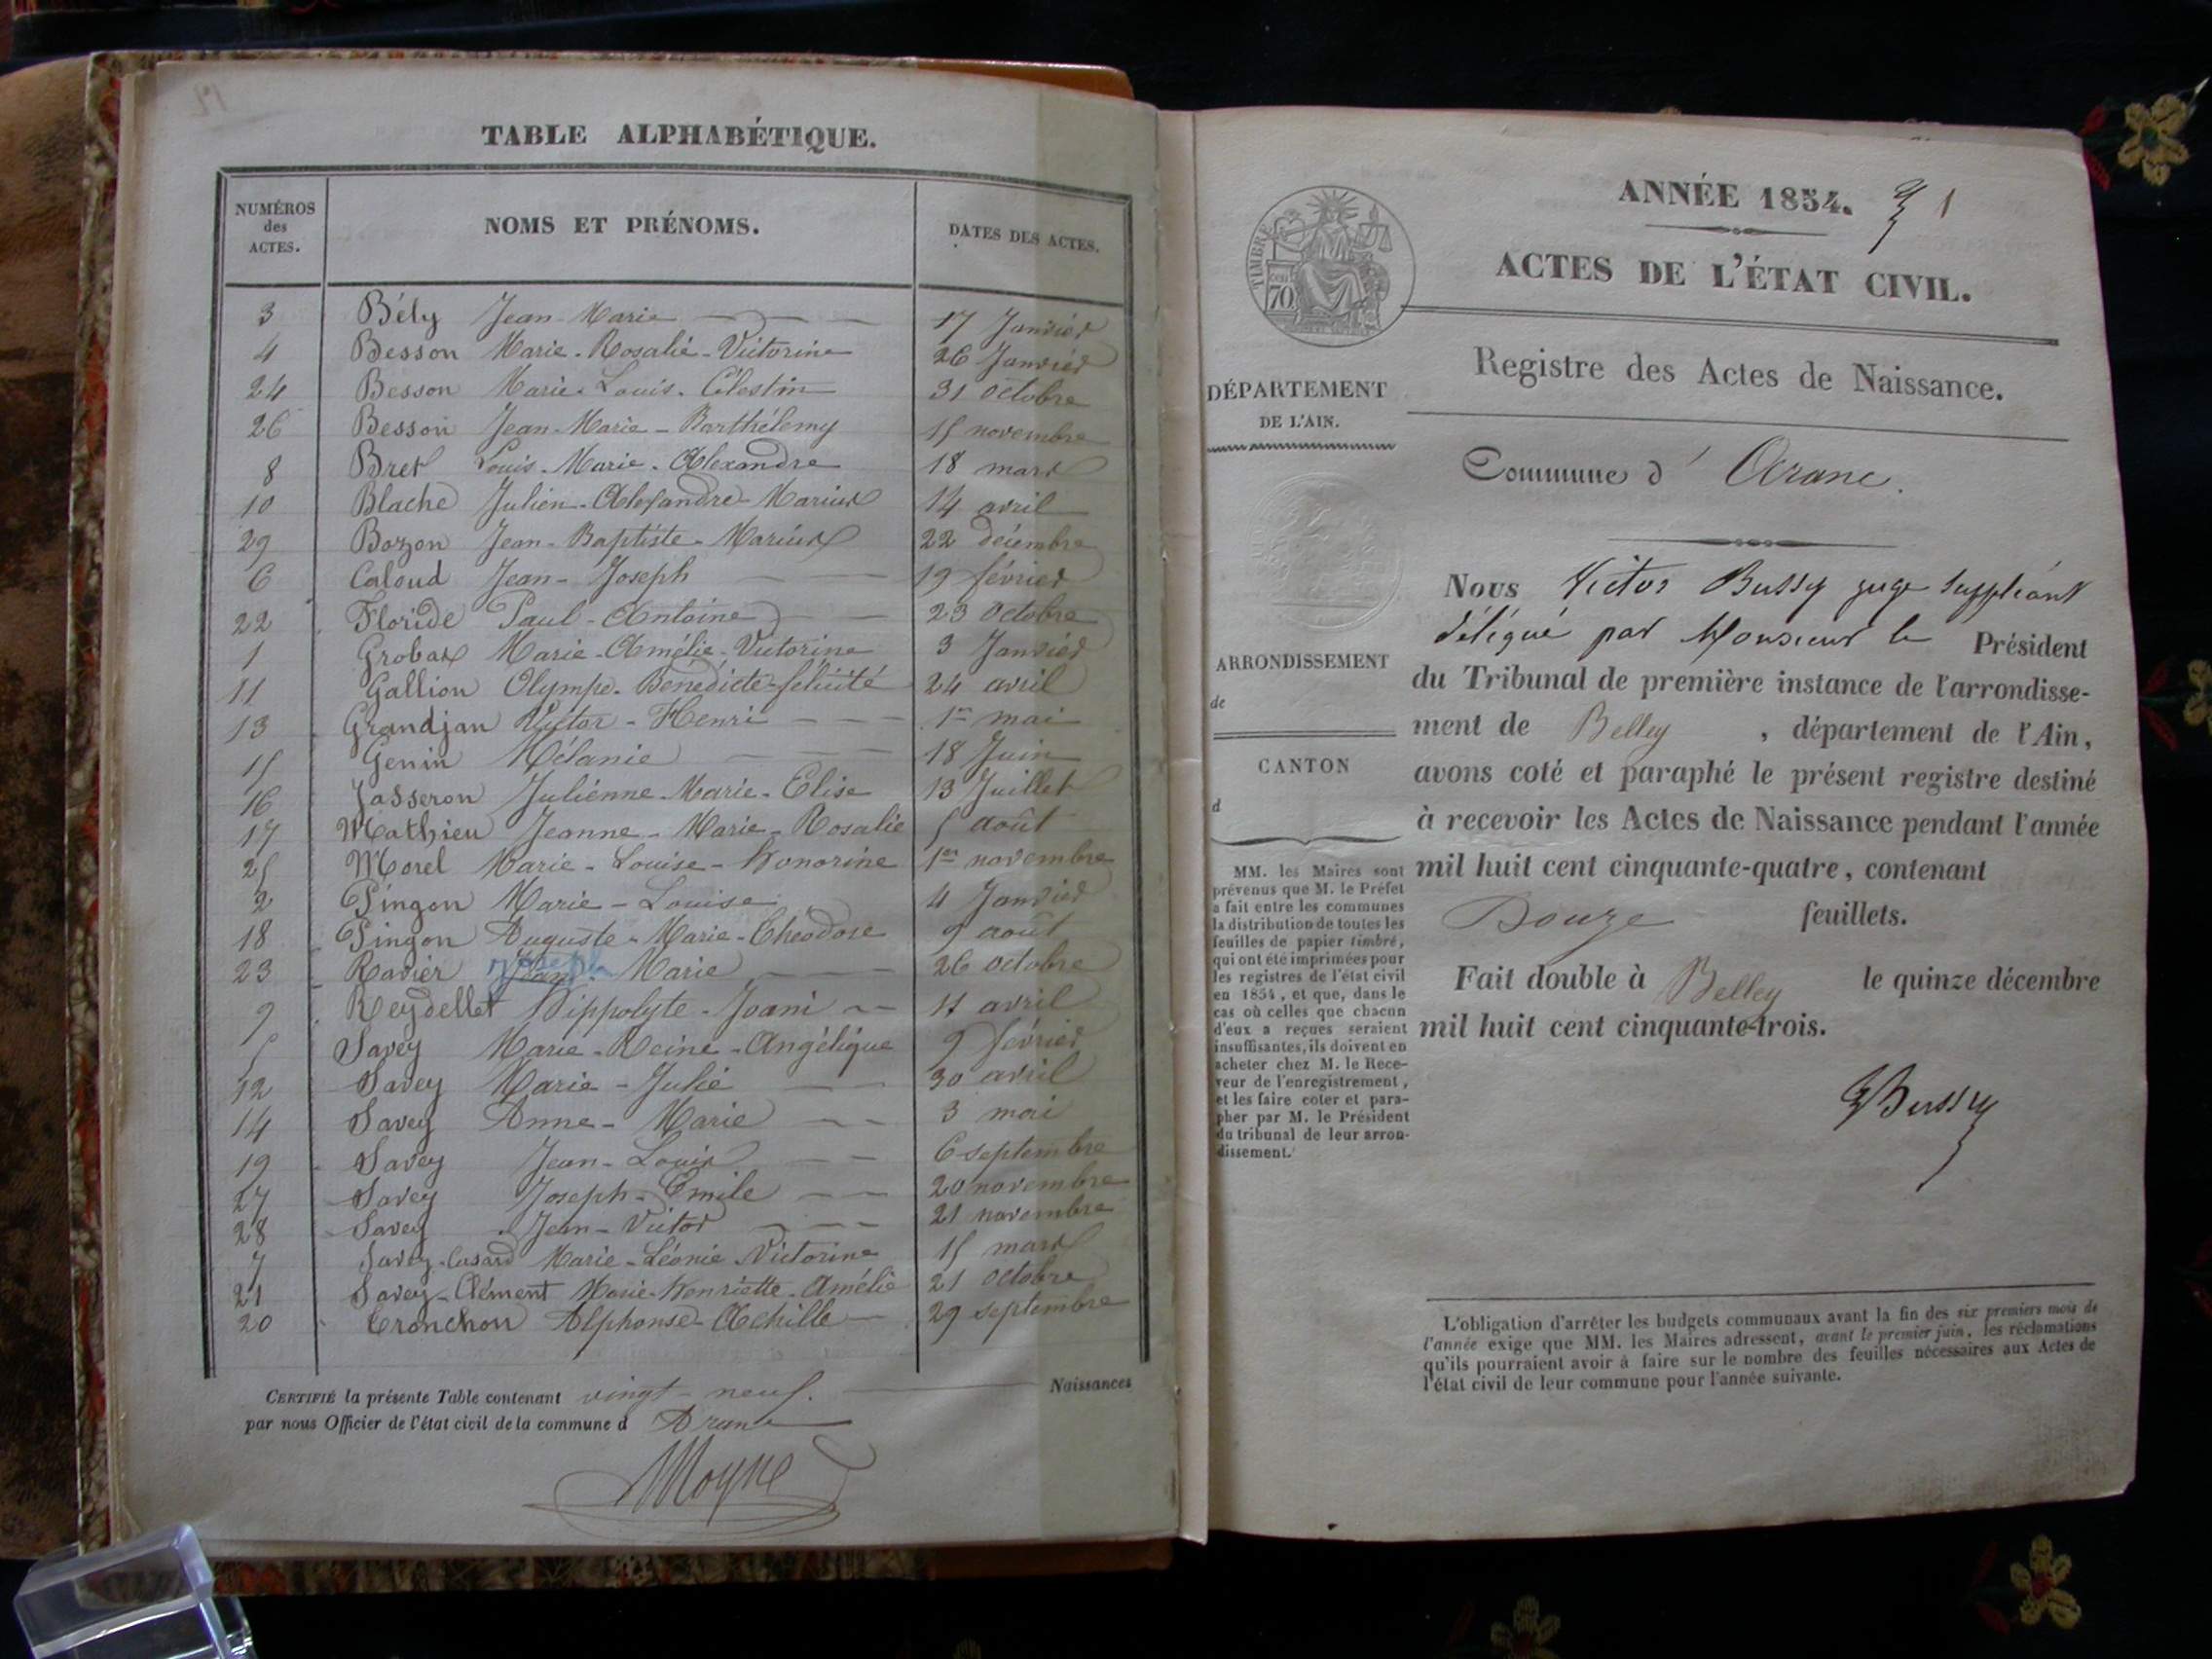 TABLE ALPHABÉTIQUE.
NUMÉROS des ACTES. NOMS ET PRÉNOMS. DATES DES ACTES.
3 Bély Jean-Marie 17 Janvier
4 Besson Marie-Rosalie-Victorine 26 Janvier
24 Besson Marie-Louis-Célestin 31 Octobre
26 Besson Jean-Marie-Barthélemy 15 novembre
8 Bret Louis-Marie-Alexandre 18 mars
10 Blache Julien-Alexandre-Marius 14 avril
29 Bozon Jean-Baptiste-Marius 22 décembre
6 Caloud Jean-Joseph 19 février
22 Floride Paul-Antoine 23 Octobre
1 Grobas Marie-Amélie-Victorine 3 Janvier
11 Gallion Olympe-Bénédicte-félicité 24 avril
13 Grandjan Victor-Henri 1er mai
15 Genin Mélanie 18 Juin
16 Jasseron Julienne-Marie-Elise 13 Juillet
17 Mathieu Jeanne-Marie-Rosalie 5 août
25 Morel Marie-Louise-Honorine 1er novembre
2 Pingon Marie-Louise 4 Janvier
18 Pingon Auguste-Marie-Théodore 9 août
23 Ravier Joseph Marie 26 Octobre
9 Reydellet Hippolyte-Joani 11 avril
5 Savey Marie-Reine-Angélique 9 février
12 Savey Marie-Julie 30 avril
14 Savey Anne-Marie 3 mai
19 Savey Jean-Louis 6 septembre
27 Savey Joseph-Emile 20 novembre
28 Savey Jean-Victor 21 novembre
7 Savey-Cusard Marie-Léonie-Victorine 15 mars
21 Savey-Clément Marie-Henriette-Amélie 21 Octobre
20 Tronchon Alphonse-Achille 29 septembre
CERTIFIÉ la présente Table contenant vingt-neuf. Naissances
par nous Officier de l'état civil de la commune d Aranc
Moyne
ANNÉE 1854. 1
ACTES DE L'ÉTAT CIVIL.
TIMBRE
70
Registre des Actes de Naissance.
DÉPARTEMENT
DE L'AIN.
Commune d' Aranc.
Nous Victor Bussy juge suppléant
délégué par Monsieur le Président
du Tribunal de première instance de l'arrondisse-
ment de Belley , département de l'Ain,
avons coté et paraphé le présent registre destiné
à recevoir les Actes de Naissance pendant l'année
mil huit cent cinquante-quatre, contenant
Douze feuillets.
Fait double à Belley le quinze décembre
mil huit cent cinquante-trois.
Bussy
ARRONDISSEMENT
de
CANTON
d
MM. les Maires sont
prévenus que M. le Préfet
a fait entre les communes
la distribution de toutes les
feuilles de papier timbré,
qui ont été imprimées pour
les registres de l'état civil
en 1854, et que, dans le
cas où celles que chacun
d'eux a reçues seraient
insuffisantes, ils doivent en
acheter chez M. le Rece-
veur de l'enregistrement,
et les faire coter et para-
pher par M. le Président
du tribunal de leur arron-
dissement.
L'obligation d'arrêter les budgets communaux avant la fin des six premiers mois de
l'année exige que MM. les Maires adressent, avant le premier juin, les réclamations
qu'ils pourraient avoir à faire sur le nombre des feuilles nécessaires aux Actes de
l'état civil de leur commune pour l'année suivante.